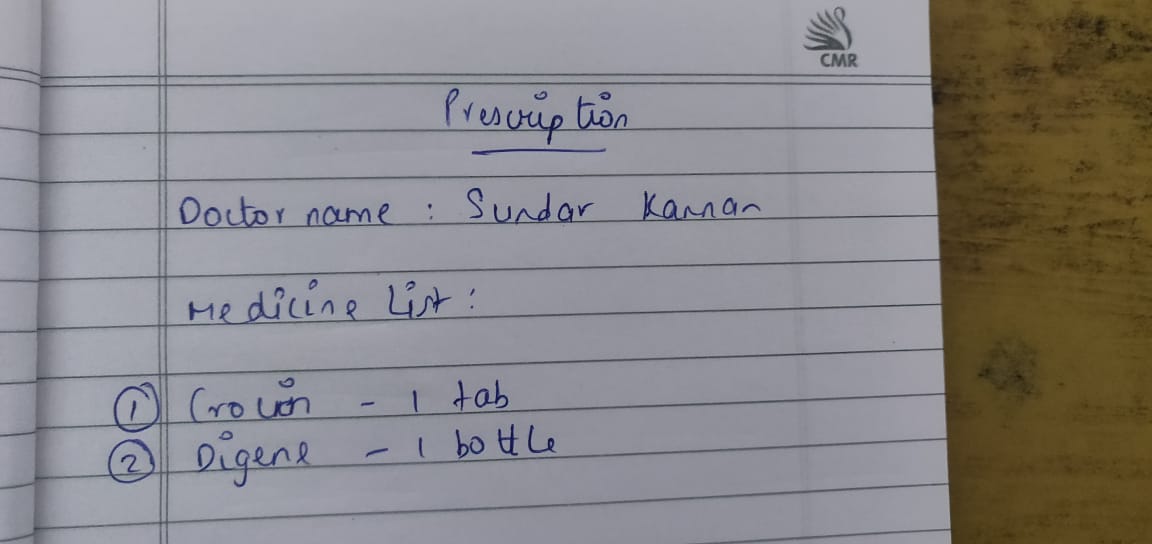 CMR
Prescription
Doctor name : Sundar Kannan
Medicine List :
① Crocin - 1 tab
② Digene - 1 bottle